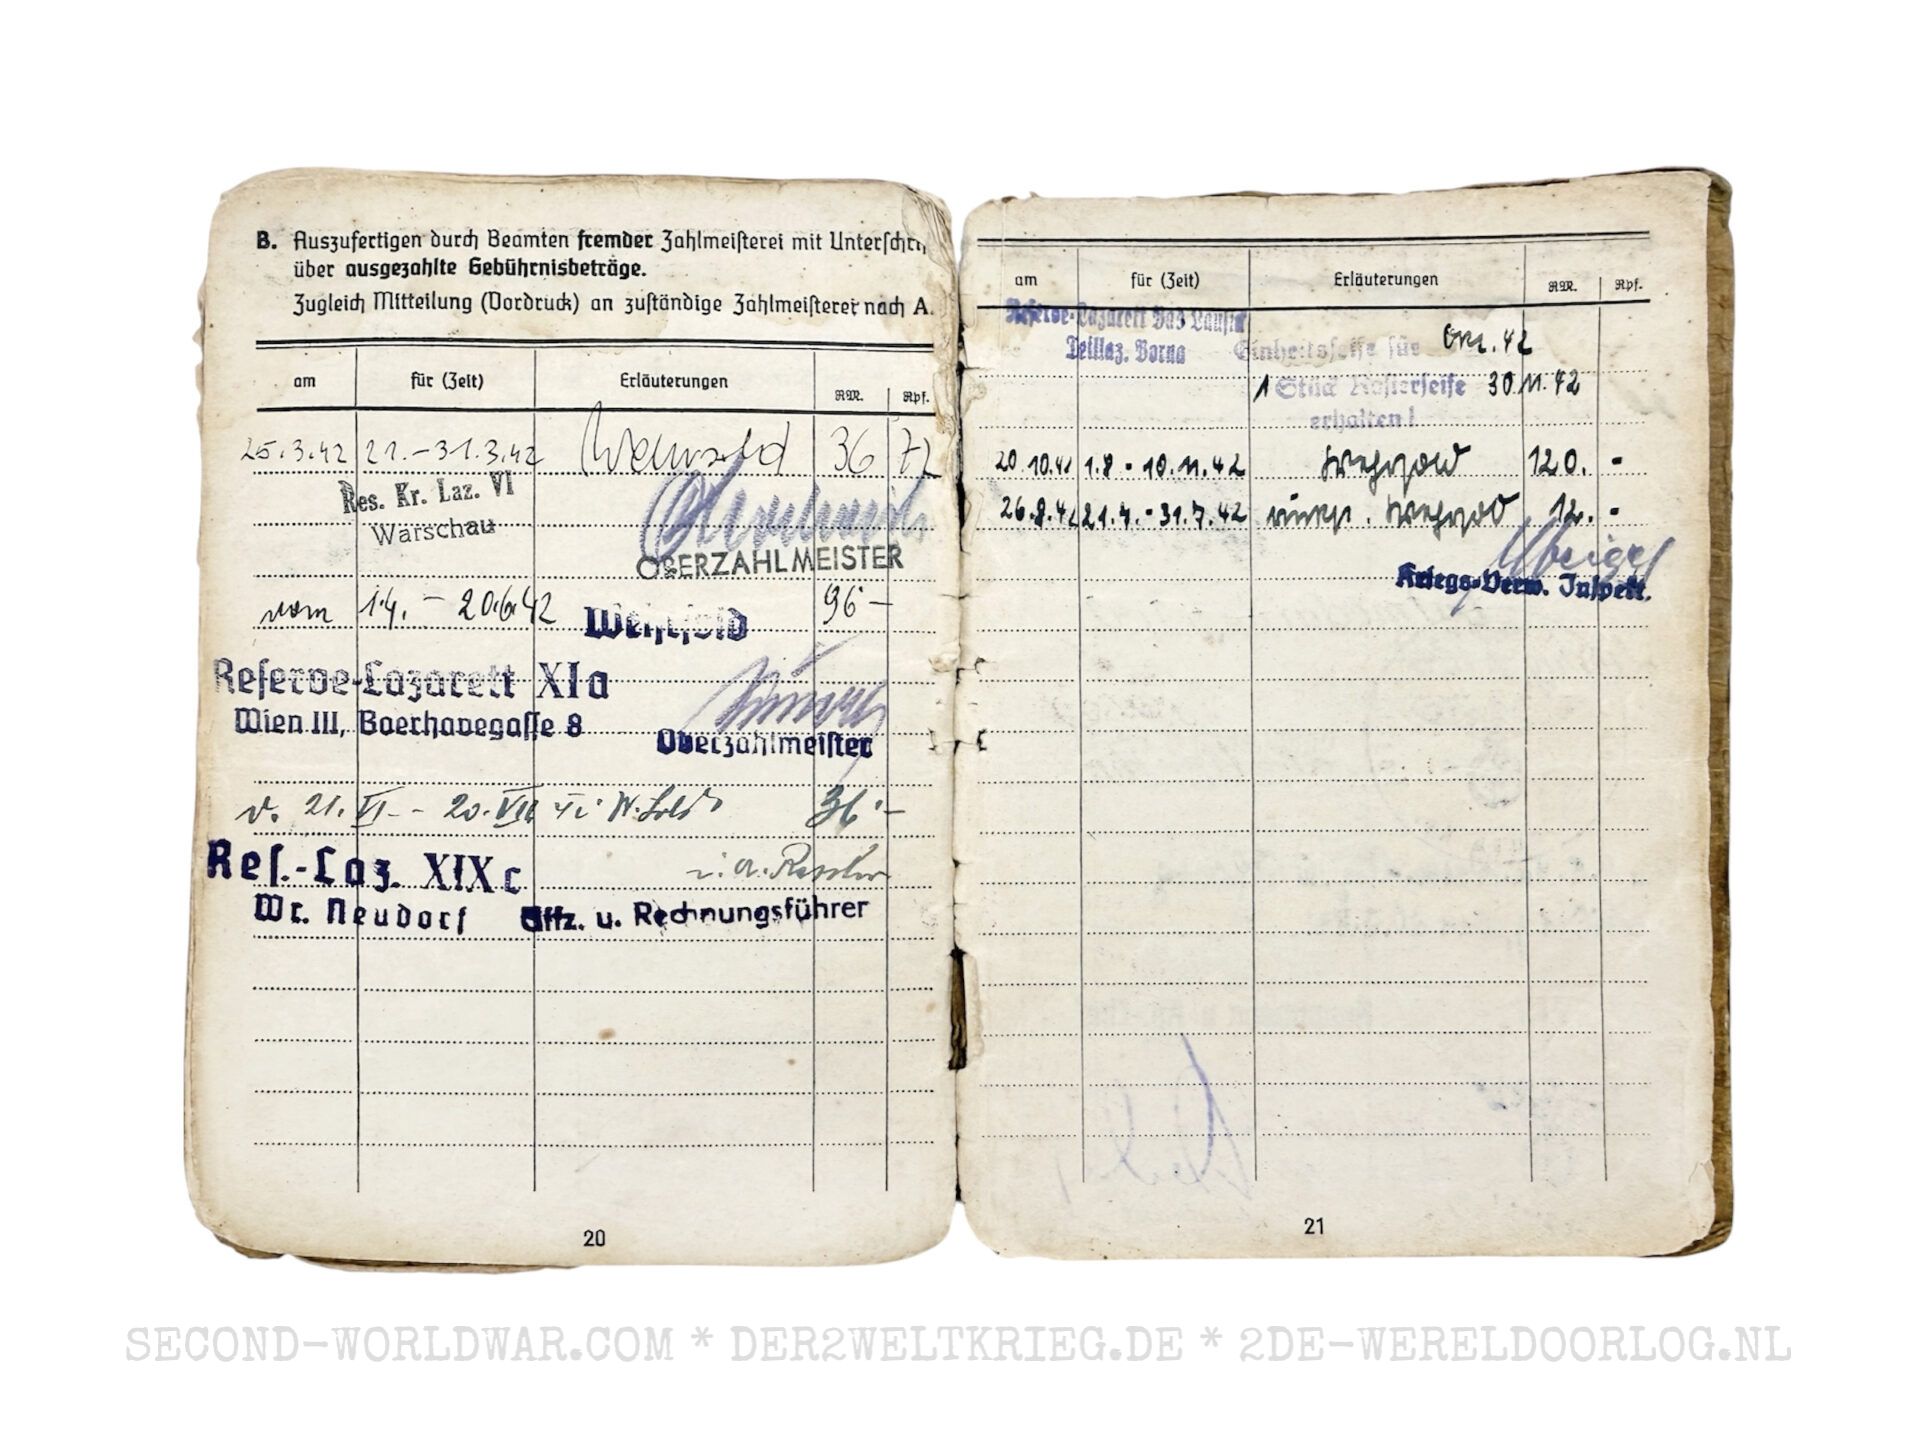 B. Auszufertigen durch Beamten fremder Zahlmeisterei mit Unterschri
über ausgezahlte Gebührnisbeträge.
Zugleich Mitteilung (Vordruck) an zuständige Zahlmeisterei nach A.
am für (Zeit) Erläuterungen RM. Rpf.
25.3.42 21.-31.3.42 Wehrsold 36 72
Res. Kr. Laz. VI
Warschau
OBERZAHLMEISTER
vom 1.4. - 20.6.42 Wehrsold 96 -
Reserve-Lazarett XIa
Wien III, Boerhavegasse 8
Oberzahlmeister
v. 21. VI. - 20. VII W. Sold 36.-
Res.-Laz. XIXc i. A.
Wr. Neudorf Uffz. u. Rechnungsführer
20
am für (Zeit) Erläuterungen RM. Rpf.
Reserve-Lazarett Bad Lausick
Teillaz. Borna
Einheitsseife für Okt. 42
1 Stück Rasierseife 30.11.42
erhalten!
20.10.42 1.8 - 10.11.42 Wehrsold 120. -
26.8.42 21.7. - 31.7.42 Wehrsold 12. -
Kriegs-Verw. Inspekt.
21
SECOND-WORLDWAR.COM * DER2WELTKRIEG.DE * 2DE-WERELDOORLOG.NL